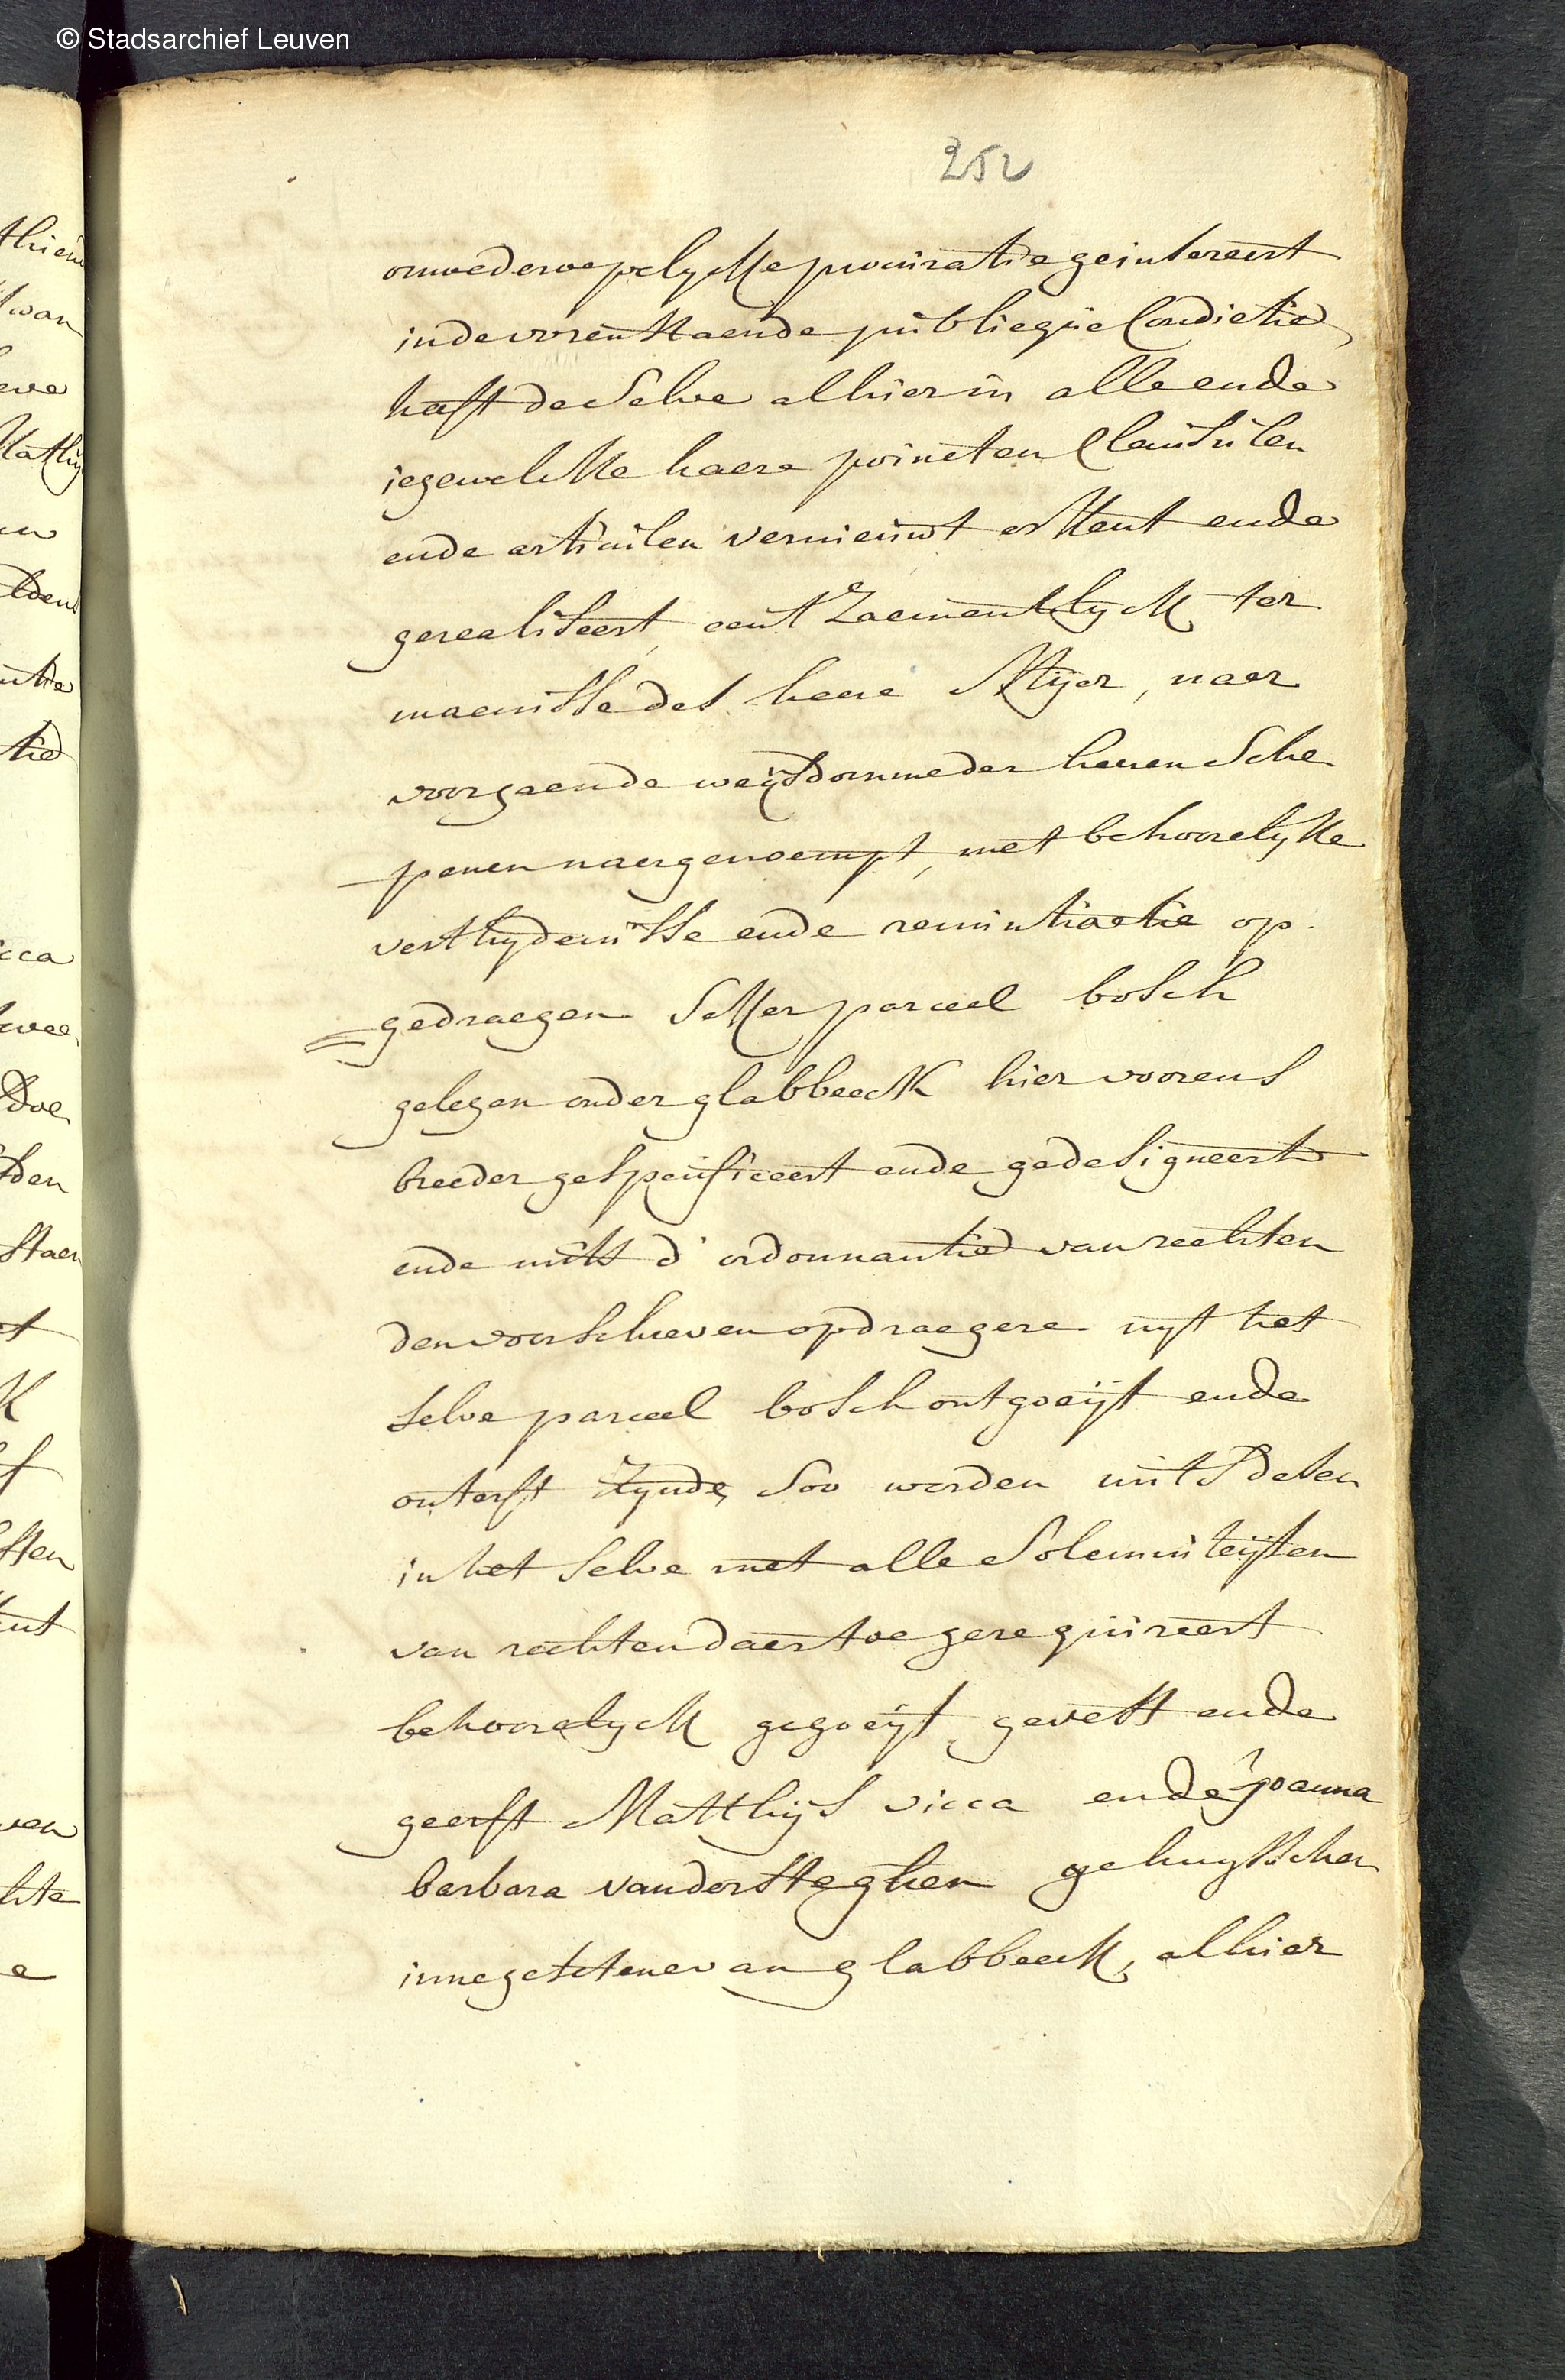 © Stadsarchief Leuven
252
onwederoepelycke procuratie geinsereert
inde vorenstaende publieque Condictie
heeft de selve alhier in alle ende
iegewelcke haere poincten Clausulen
ende articulen vernieuwt erkent ende
gerealiseert, ent zaementlyck ter
maenisse des heere Meyer, naer
voorgaende weysdomme der heeren Sche
penen naergenoempt, met behoorelycke
verthydenisse ende renuntiactie op
gedraegen seker parceel bosch
gelegen onder glabbeeck hier voorens
breeder gespecificeert ende gedesigneert
ende mits d'ordonnantie van rechten
den voorschreven opdraegere uyt het
selve parceel bosch ontgoeyt ende
onterft zynde, soo worden mits desen
in het selve met alle solemniteyten
van rechten daer toe gerequireert
behoorelyck gegoeyt gevest ende
geerft Matthys vicca ende joanna
barbara vandersteghen gehuysschen
innegesetene van glabbeeck, alhier